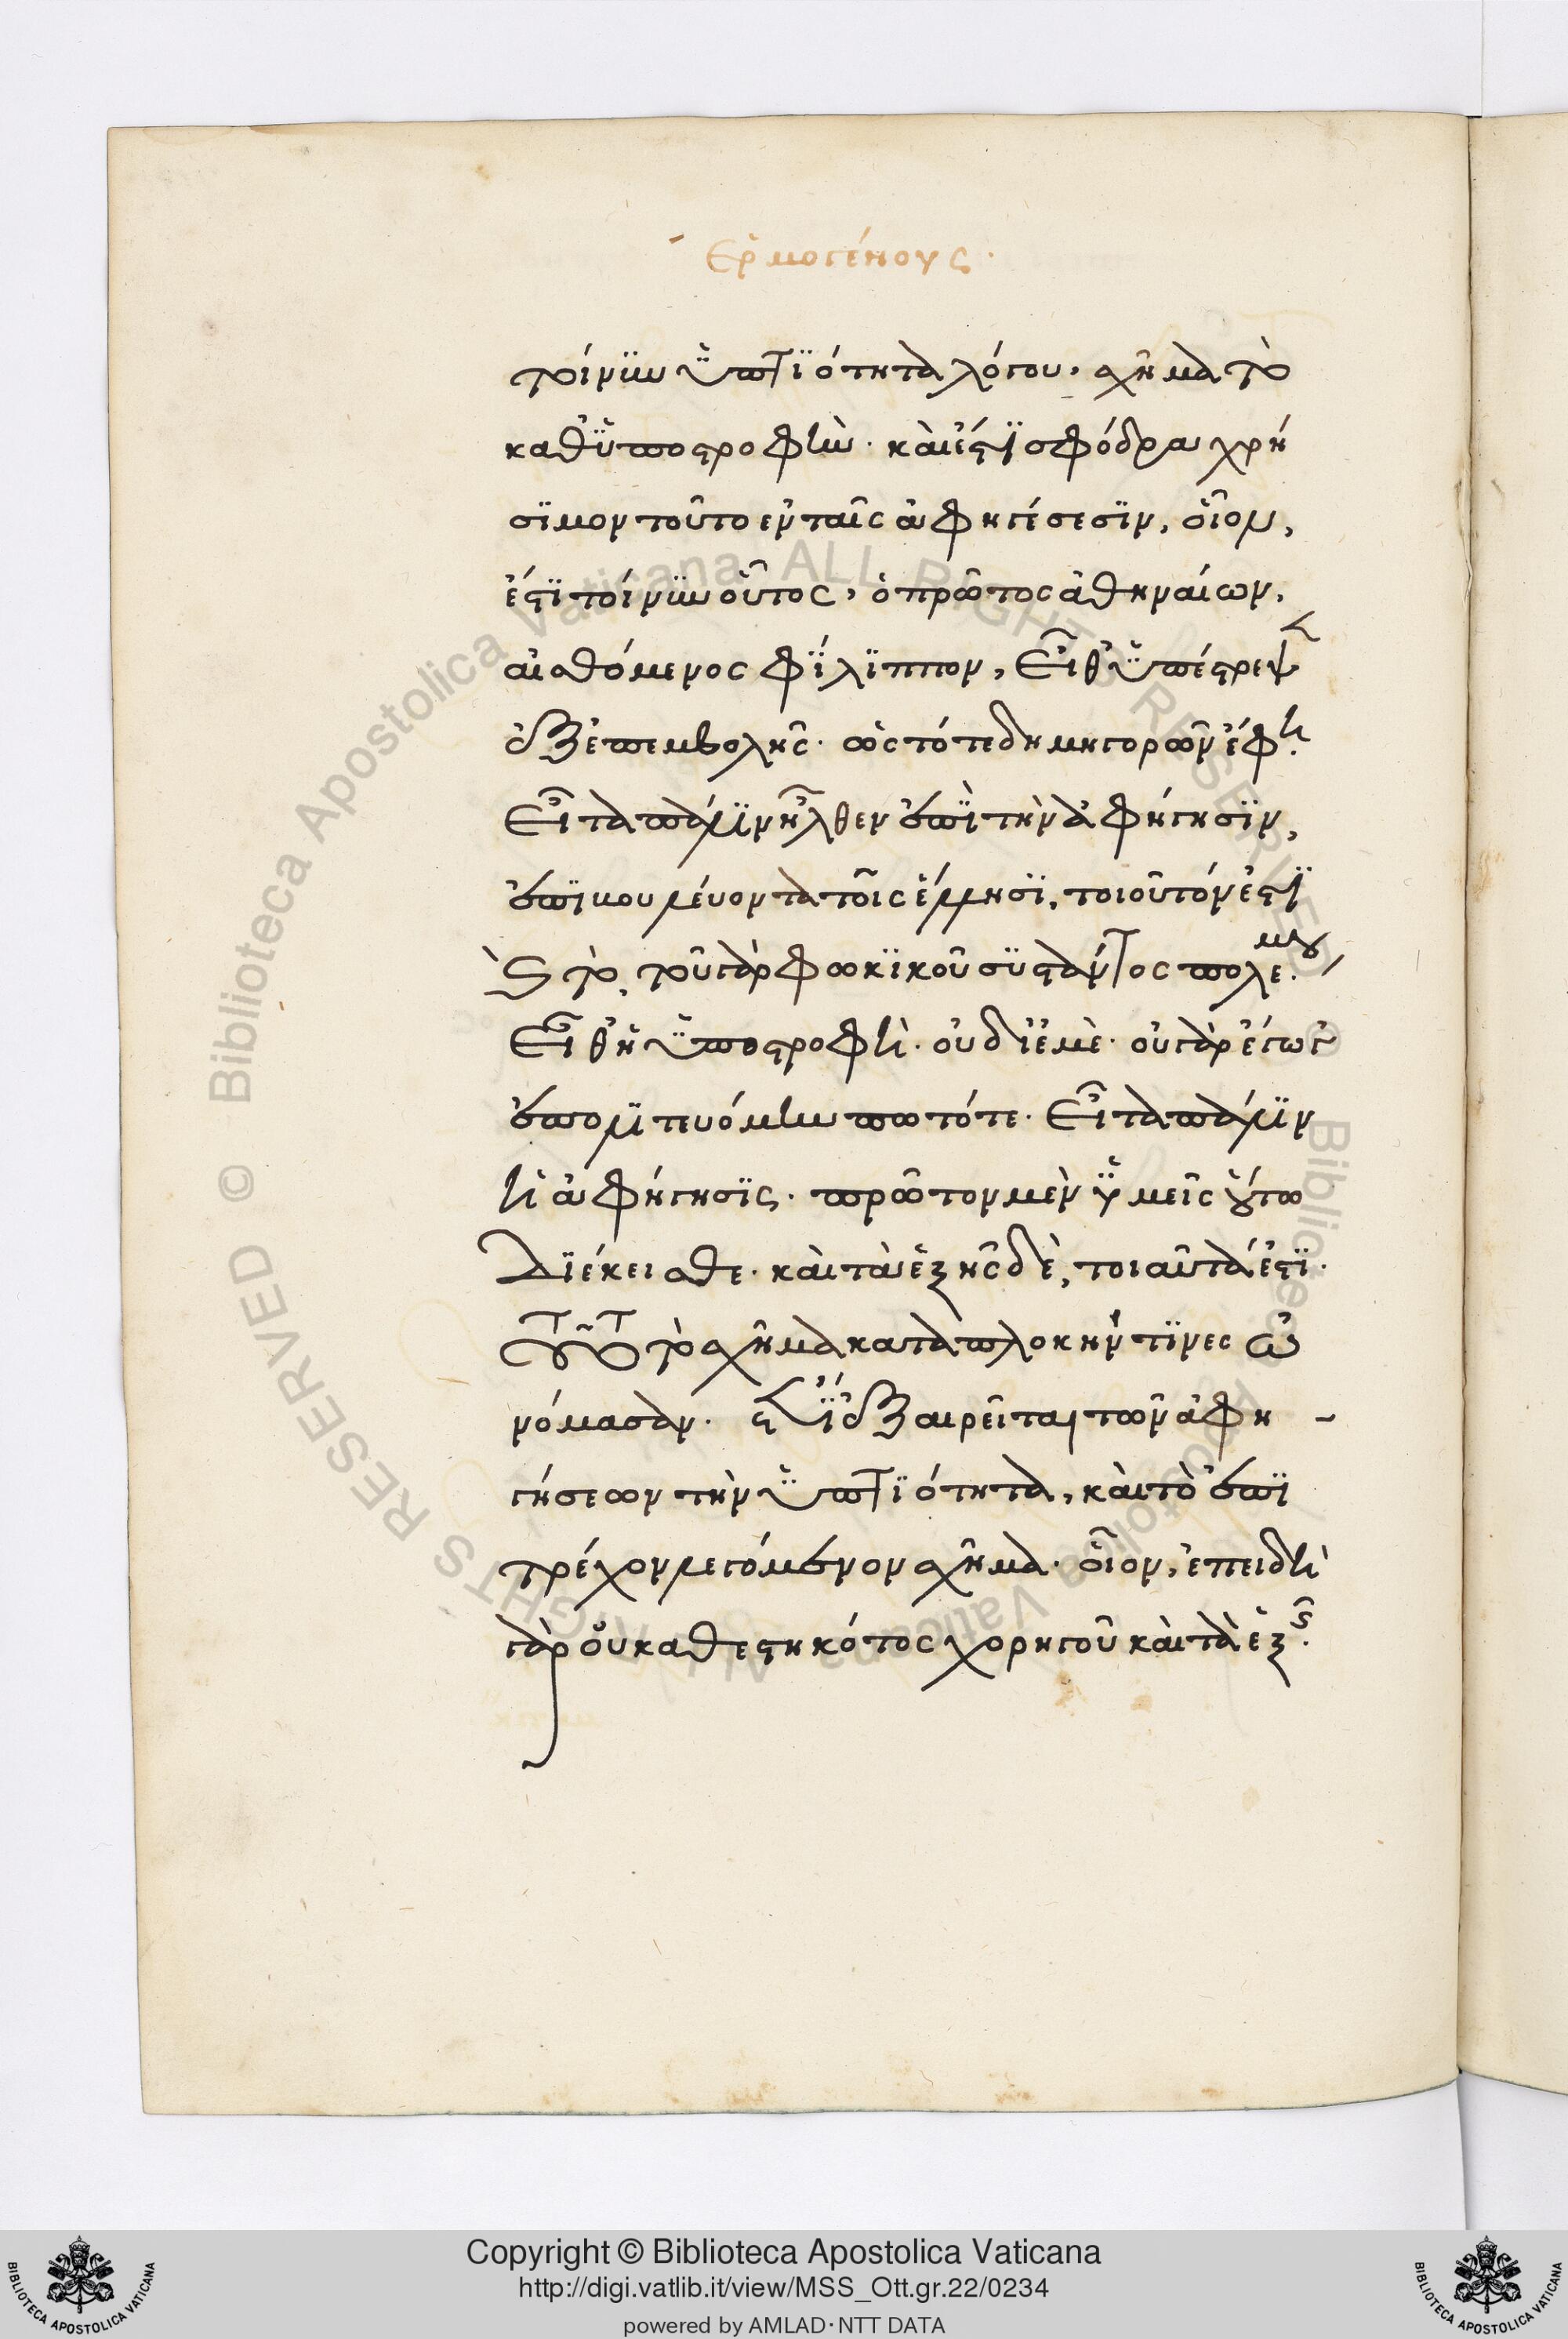 Ἑρμογένους.
τρίνην ὑπτιότητα λόγου, σχῆμα τὸ
καθ' ὑποστροφὴν. καὶ ἔστι σφόδρα χρή
σιμον τοῦτο ἐν ταῖς ἀφηγήσεσιν, οἷον,
ἔστι τοίνυν οὗτος, ὁ πρῶτος ἀθηναίων,
αἰσθόμενος φίλιππον, εἶθ' ὑπέστρεψεν
ἐξ ἐπεμβολῆς. ὡς τότε δημηγορῶν ἔφη.
εἶτα πάλιν ἦλθεν ἐπὶ τὴν ἀφήγησιν,
ἐπιβουλεύοντα τοῖς ἕλλησι, τοιοῦτόν ἐστι
καὶ τὸ, τοῦ γὰρ φωκικοῦ συστάντος πολέμου,
εἶθ' ἡ ὑποστροφὴ. οὐ δι' ἐμὲ. οὐ γὰρ ἔγωγε
ἐπολιτευόμην πω τότε. εἶτα πάλιν
ἡ ἀφήγησις. πρῶτον μὲν ὑμεῖς οὕτω
διέκεισθε. καὶ τὰ ἑξῆς δὲ, τοιαῦτά ἐστι.
τοῦτο τὸ σχῆμα κατὰ πλοκήν τινες ὠ
νόμασαν. ἔτι ἐξαιρεῖται τῶν ἀφη-
γήσεων τὴν ὑπτιότητα, καὶ τὸ ἐπι
τρέχον λεγόμενον σχῆμα. οἷον, ἐπειδὴ
γὰρ οὐ καθεστηκότος χορηγοῦ καὶ τὰ ἑξῆς.
Copyright © Biblioteca Apostolica Vaticana
http://digi.vatlib.it/view/MSS_Ott.gr.22/0234
powered by AMLAD·NTT DATA